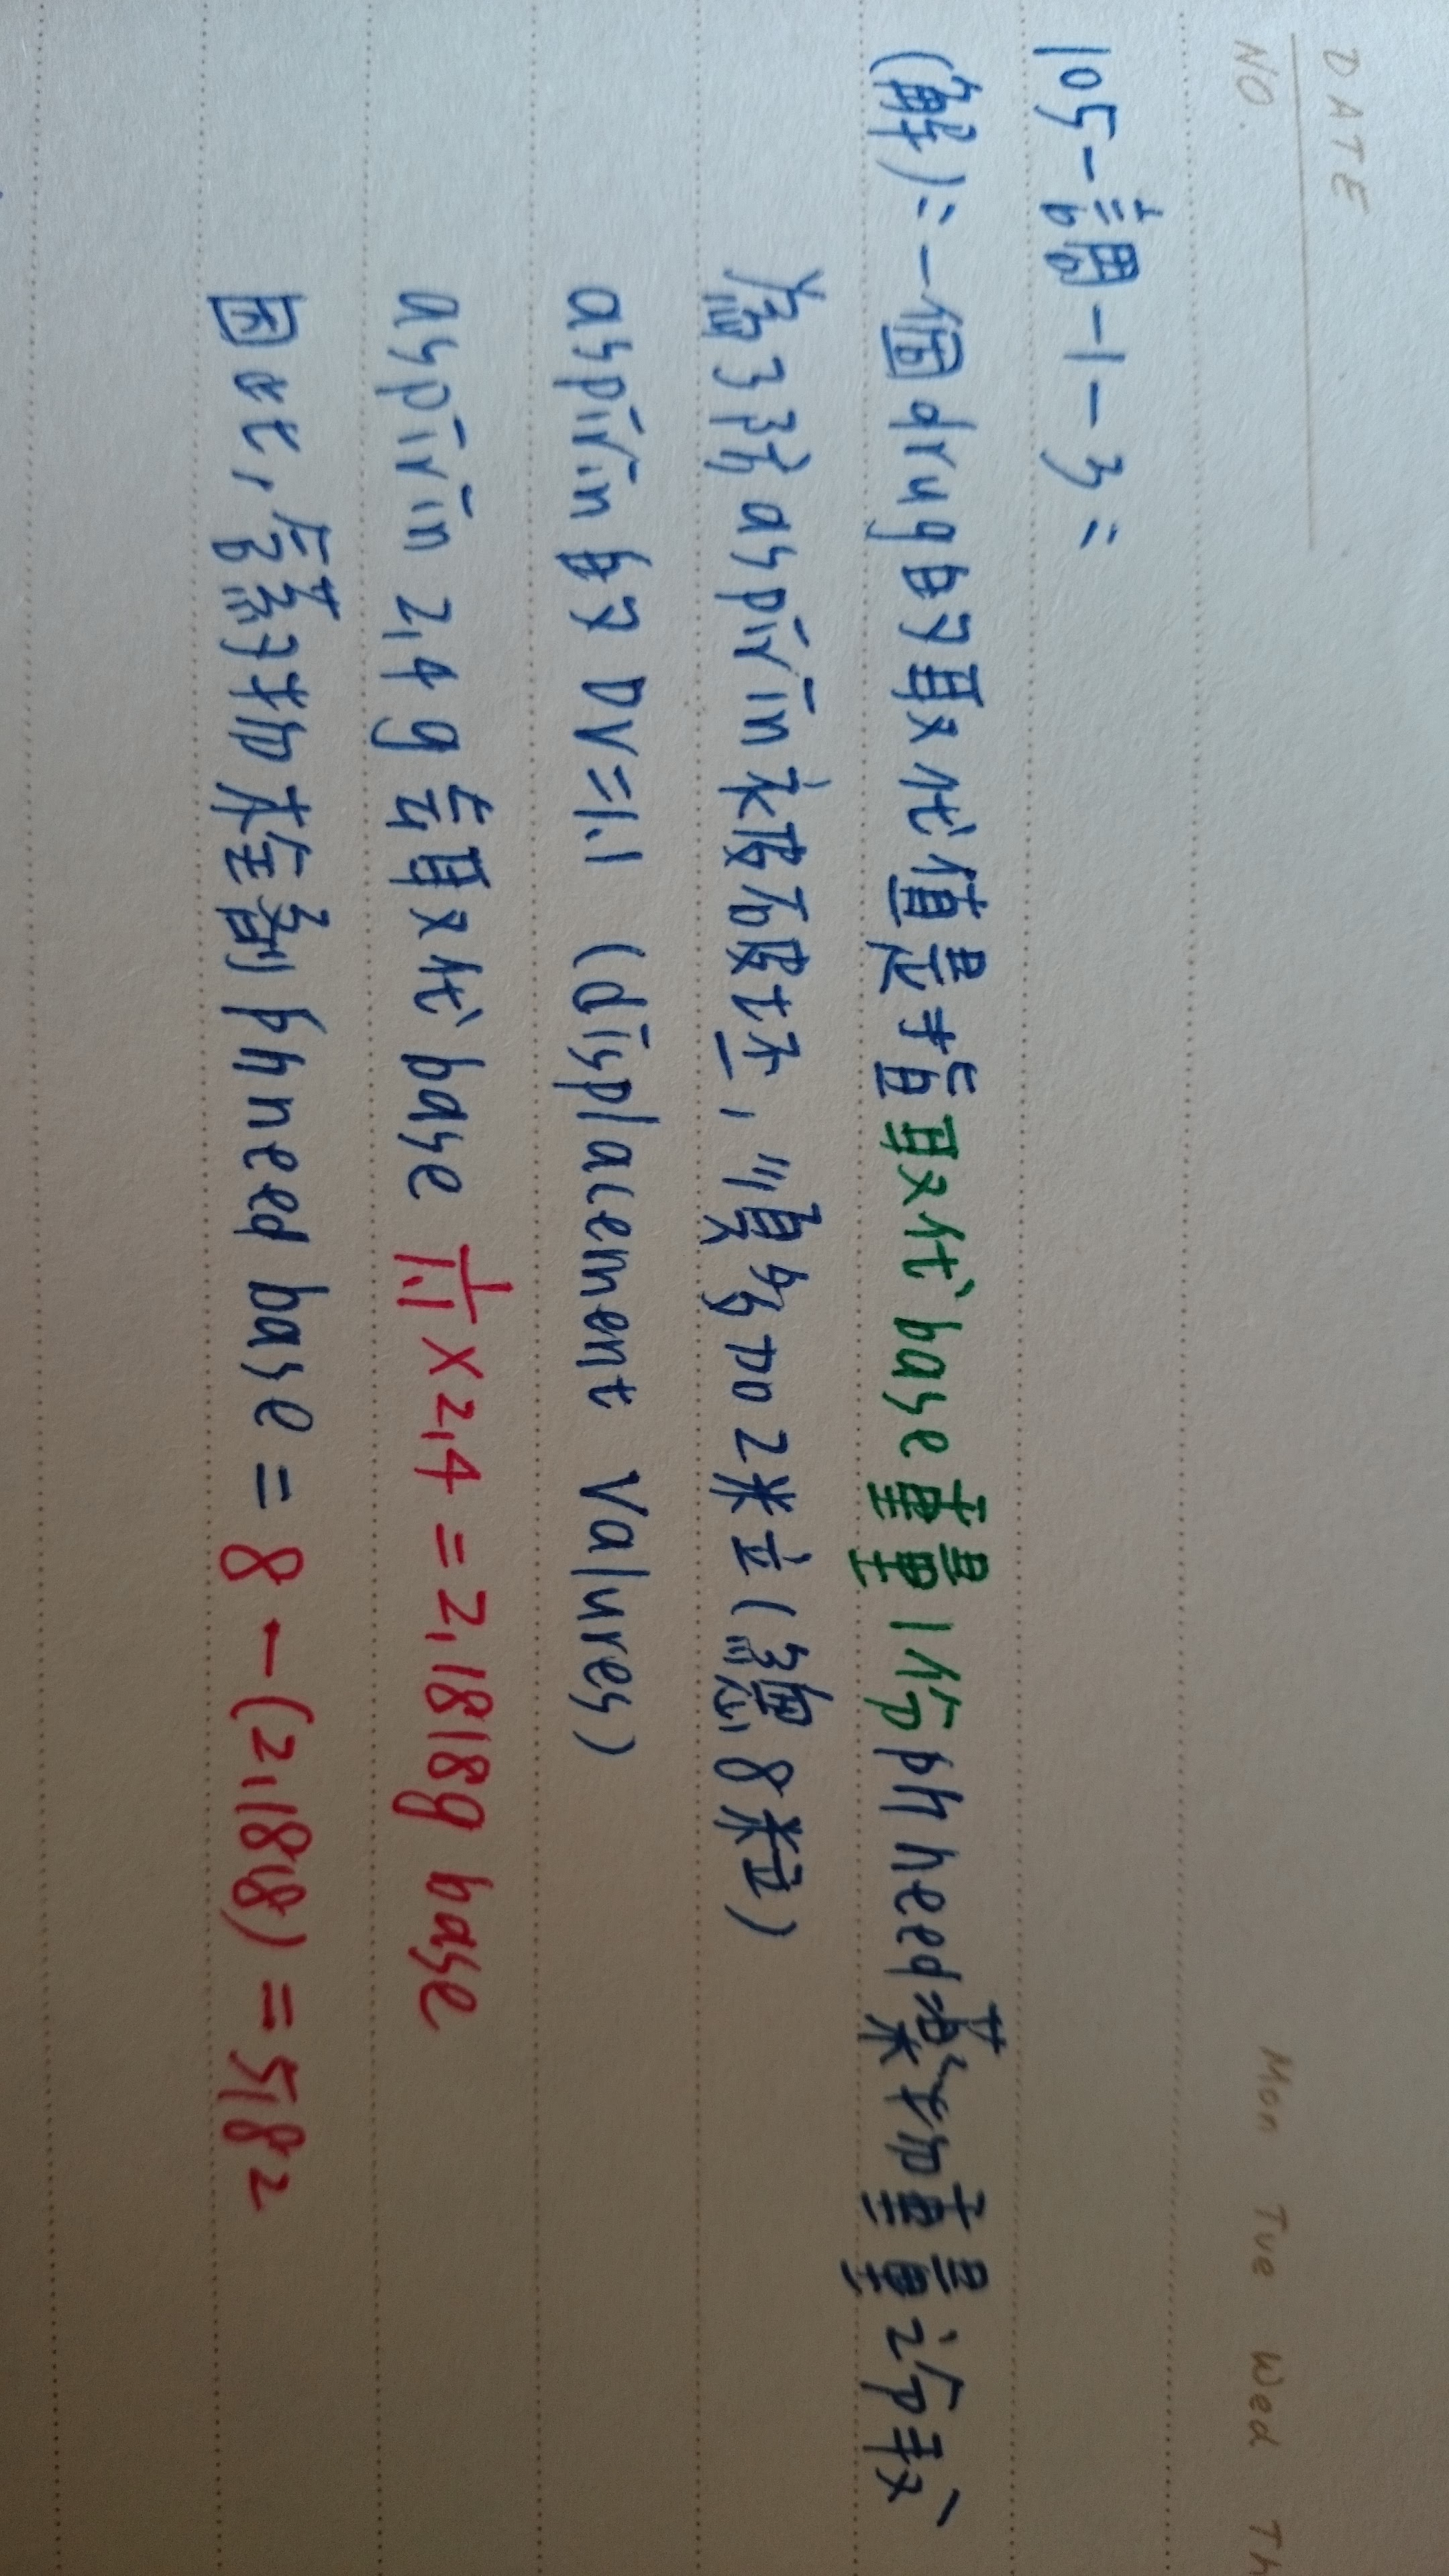 DATE
NO.
Mon Tue Wed Th
105-調-1-3:
(解):一個drug的取代值是指取代base重量1份ph need藥物重量之份數
為了防aspirin水破破坯,須多加2粒(總8粒)
aspirin的 DV=1.1 (displacement Valures)
aspirin 2.4g 去取代 base 1/1.1 × 2.4 = 2.1818g base
因此,需添加本全劑 ph need base = 8 - (2.1818) = 5.82